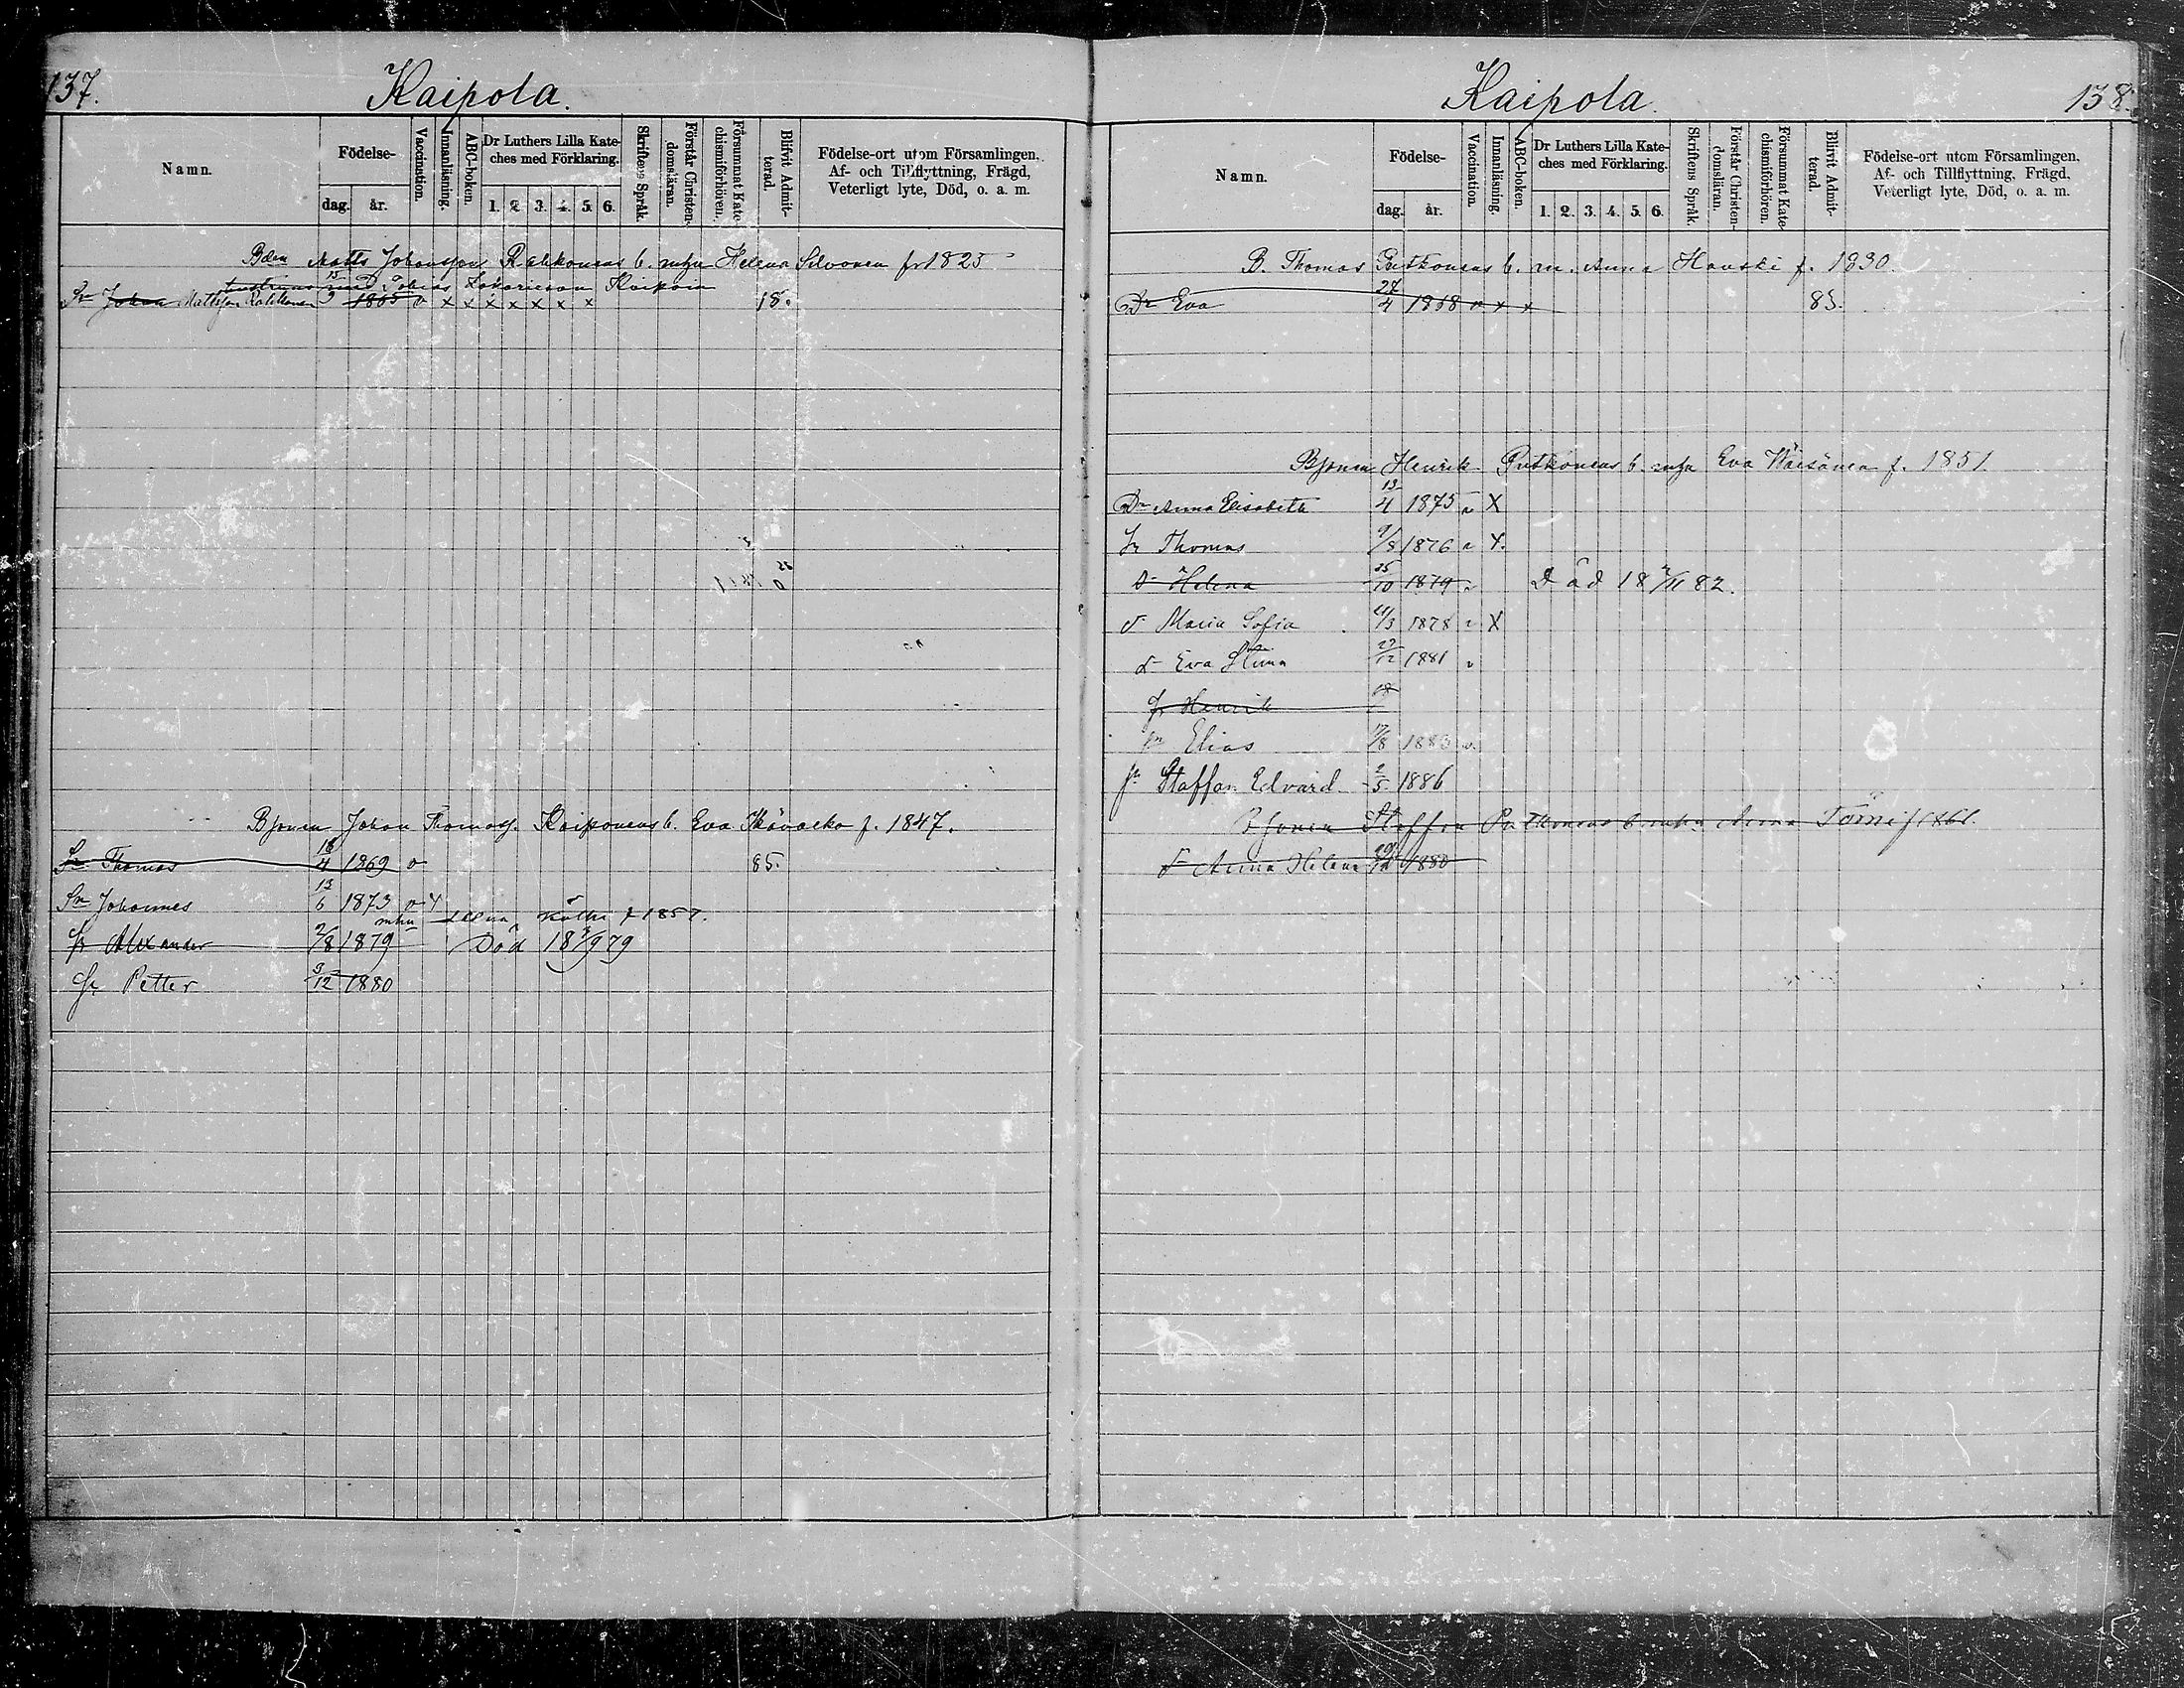 137.
Kaipola.
Namn.
Födelse-
dag.
år.
Vaccination.
Innanläsning.
ABC-boken.
Dr Luthers Lilla Kate-
ches med Förklaring.
1. 2. 3. 4. 5. 6.
Skriftens Språk.
Förstår Christen-
domsläran.
Försummat Kate-
chismiförhören.
Blifvit Admit-
terad.
Födelse-ort utom Församlingen,
Af- och Tillflyttning, Frägd,
Veterligt lyte, Död, o. a. m.
Matts Johansson Rahkonens b. Helena Silvonen f. 1825
Tobias
Sn Johan Mattsson Rahkonen 15/3 1865 v x x x x x x x
Bjonen Johan Thomass. Kaiponens b. Eva f. 1847.
Sn Thomas 18/4 1869 v 85.
Sn Johannes 13/6 1873 v x
f 1857.
Sr Alexander 2/8 1879 Död 18 /9 79
Sr Petter 3/12 1880
Kaipola.
138.
Namn.
Födelse-
dag.
år.
Vaccination.
Innanläsning.
ABC-boken.
Dr Luthers Lilla Kate-
ches med Förklaring.
1. 2. 3. 4. 5. 6.
Skriftens Språk.
Förstår Christen-
domsläran.
Försummat Kate-
chismiförhören.
Blifvit Admit-
terad.
Födelse-ort utom Församlingen,
Af- och Tillflyttning, Frägd,
Veterligt lyte, Död, o. a. m.
B. Thomas Putkonens b. m. Anna Hauski f. 1830.
Dr Eva 27/4 1868 v x x 85.
Bjonen Henrik Putkonens b. Eva Wäisänen f. 1851
Dr Anna Elisabeth 13/4 1875 v X
Sr Thomas 9/8 1876 v x.
D Helena 25/10 1879 v Död 18 /11 82.
d Maria Sofia 4/3 1878 v X
d Eva 1881 v
Sr Henrik
Sn Elias 17/8 1883 v.
Sr Staffan Edvard 2/5 1886
Bjonen Staffan Putkonens b. Anna Törni f 1861.
d Anna Helena 1880